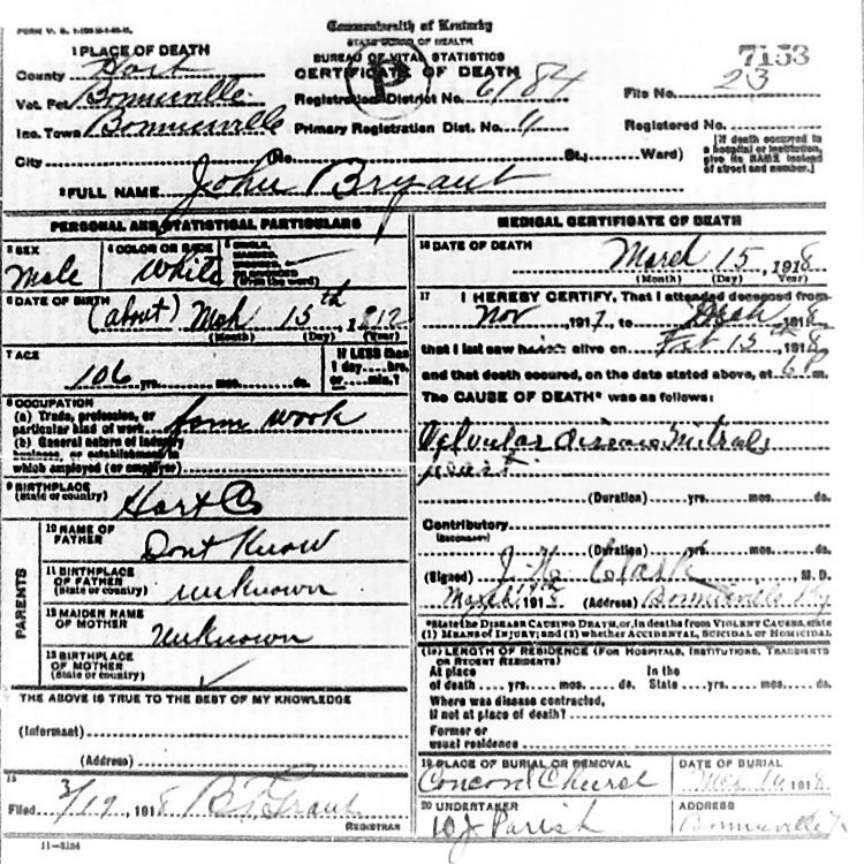 Commonwealth of Kentucky
STATE BOARD OF HEALTH
BUREAU OF VITAL STATISTICS
CERTIFICATE OF DEATH
7153
1 PLACE OF DEATH
County Hart
Vot. Pct. Bonnieville
Inc. Town Bonnieville
Registration District No. 6184
File No. 23
Primary Registration Dist. No. 4
Registered No.
[If death occurred in a hospital or institution, give its NAME instead of street and number.]
City (No. St.; Ward)
2 FULL NAME John Bryant
PERSONAL AND STATISTICAL PARTICULARS
3 SEX
Male
4 COLOR OR RACE
White
5 SINGLE, MARRIED, WIDOWED, OR DIVORCED (Write the word)
6 DATE OF BIRTH
(about) Mch 15th, 1812
(Month) (Day) (Year)
7 AGE
106 yrs. mos. ds.
If LESS than
1 day hrs.
or min.?
8 OCCUPATION
(a) Trade, profession, or
particular kind of work farm work
(b) General nature of industry
business, or establishment in
which employed (or employer)
9 BIRTHPLACE
(State or country) Hart Co
PARENTS
10 NAME OF
FATHER Dont Know
11 BIRTHPLACE
OF FATHER
(State or country) unknown
12 MAIDEN NAME
OF MOTHER Unknown
13 BIRTHPLACE
OF MOTHER
(State or country)
THE ABOVE IS TRUE TO THE BEST OF MY KNOWLEDGE
(Informant)
(Address)
15
Filed 3/19, 1918 B. F. Grant
REGISTRAR
11-3184
MEDICAL CERTIFICATE OF DEATH
16 DATE OF DEATH
March 15, 1918
(Month) (Day) Year)
17 I HEREBY CERTIFY, That I attended deceased from
Nov, 1917, to Mch, 1918
that I last saw him alive on Feb 15th, 1918
and that death occured, on the date stated above, at 6 P m.
The CAUSE OF DEATH* was as follows:
Valvular disease Mitral
(Duration) yrs. mos. ds.
Contributory
(Secondary)
(Duration) yrs. mos. ds.
(Signed) J. H. Clark, M. D.
March 19th, 191 (Address) Bonnieville Ky
*State the DISEASE CAUSING DEATH, or, in deaths from VIOLENT CAUSES, state
(1) MEANS OF INJURY; and (2) whether ACCIDENTAL, SUICIDAL or HOMICIDAL
LENGTH OF RESIDENCE (FOR HOSPITALS, INSTITUTIONS, TRANSIENTS
OR RECENT RESIDENTS)
At place In the
of death yrs. mos. ds. State yrs. mos. ds.
Where was disease contracted,
if not at place of death?
Former or
usual residence
19 PLACE OF BURIAL OR REMOVAL
Concord Church
DATE OF BURIAL
Mch 16, 1918
20 UNDERTAKER
W J Parish
ADDRESS
Bonnieville